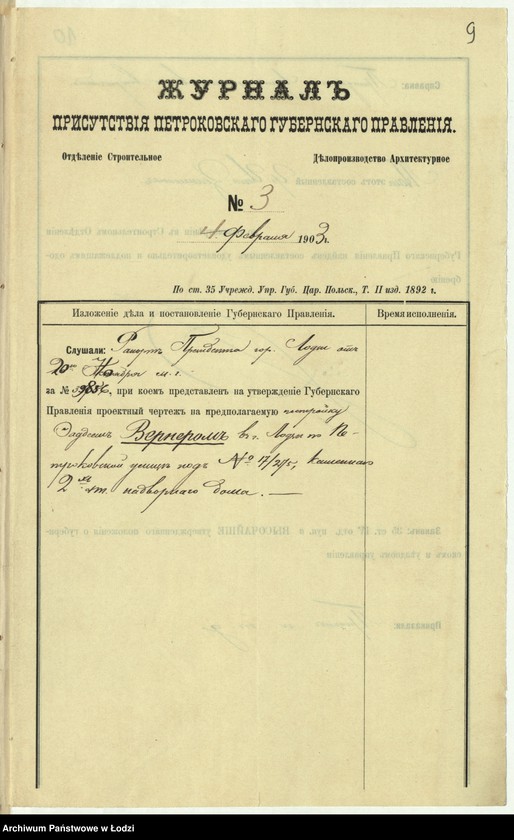 9
ЖУРНАЛЪ
ПРИСУТСТВІЯ ПЕТРОКОВСКАГО ГУБЕРНСКАГО ПРАВЛЕНІЯ.
Отдѣленіе Строительное Дѣлопроизводство Архитектурное
№ 3
4 февраля 1903 г.
По ст. 35 Учрежд. Упр. Губ. Цар. Польск., Т. II изд. 1892 г.
Изложеніе дѣла и постановленіе Губернскаго Правленія. Время исполненія.
Слушали: Рапортъ Президента гор. Лодзи отъ
20
за №, при коемъ представленъ на утвержденіе Губернскаго
Правленія проектный чертежъ на предполагаемую постройку
Вернеромъ въ г. Лодзи по Пе-
троковской улицѣ подъ № 17/275, каменнаго
2 эт. надворнаго дома. —
Archiwum Państwowe w Łodzi